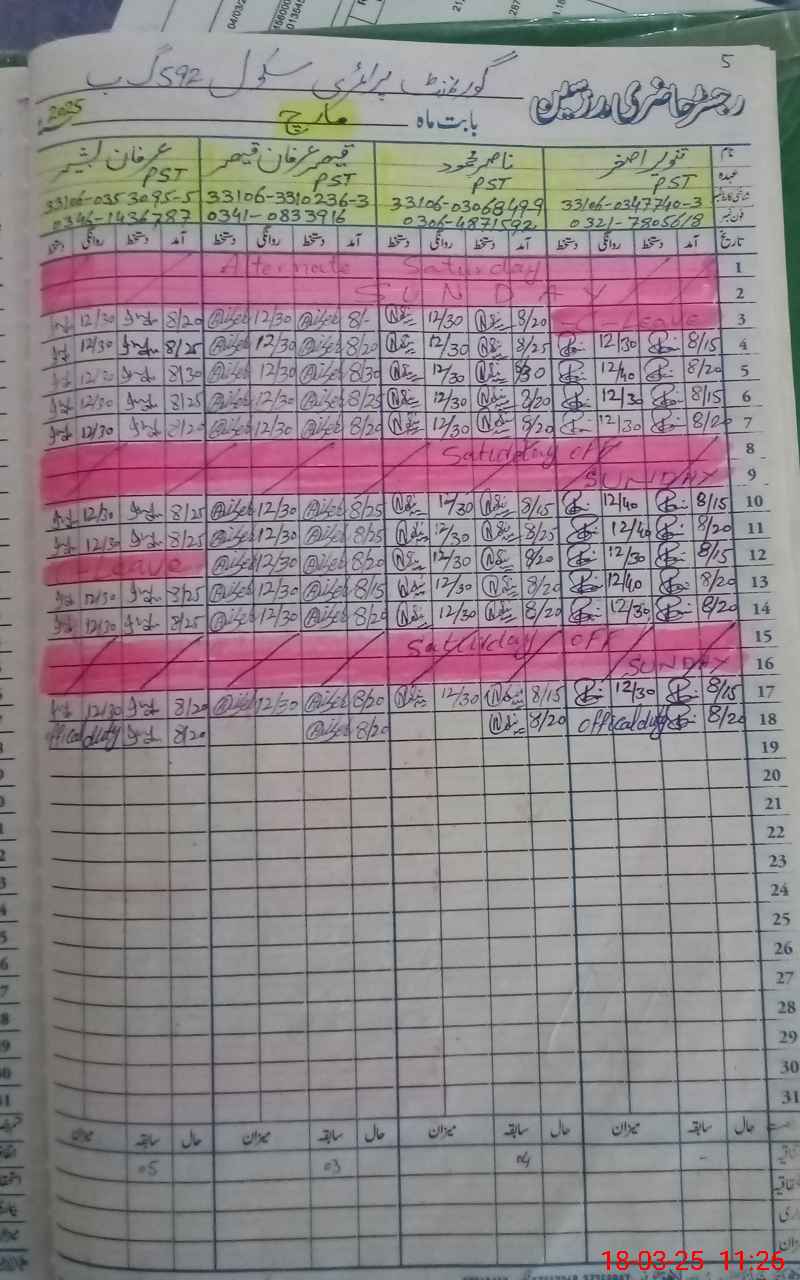 5
گورنمنٹ پرائمری سکول 592 گ ب
رجسٹر حاضری مدرسین
بابت ماہ مارچ 2025
نام تنویر اصغر ناصر محمود قیصر عرفان قیصر عرفان بشیر
عہدہ PST PST PST PST
33106-0347740-3 33106-0306849-9 33106-3310236-3 33106-0353095-5
فون نمبر 0321-7805618 0306-4871592 0341-0833916 0346-1436787
تاریخ آمد دستخط روانگی دستخط آمد دستخط روانگی دستخط آمد دستخط روانگی دستخط آمد دستخط روانگی دستخط
1 Alternate Saturday
2 SUNDAY
3 Leave 8/20 12/30 8/- 12/30 8/20 12/30
4 8/15 12/30 8/25 12/30 8/20 12/30 8/25 12/30
5 8/20 12/40 8/30 12/30 8/30 12/30 8/30 12/30
6 8/15 12/30 8/20 12/30 8/25 12/30 8/25 12/30
7 8/20 12/30 8/20 12/30 8/20 12/30 8/20 12/30
8 Saturday off
9 SUNDAY
10 8/15 12/40 8/15 12/30 8/25 12/30 8/25 12/30
11 8/20 12/40 8/25 12/30 8/25 12/30 8/25 12/30
12 8/15 12/30 8/20 12/30 8/20 12/30 Leave
13 8/20 12/40 8/20 12/30 8/15 12/30 8/25 12/30
14 8/20 12/30 8/20 12/30 8/20 12/30 8/25 12/30
15 Saturday off
16 SUNDAY
17 8/15 12/30 8/15 12/30 8/20 12/30 8/20 12/30
18 8/20 offical duty 8/20 8/20 8/20 offical duty
19
20
21
22
23
24
25
26
27
28
29
30
31
حال سابقہ میزان حال سابقہ میزان حال سابقہ میزان حال سابقہ میزان
- 04 03 05
18-03-25 11:26